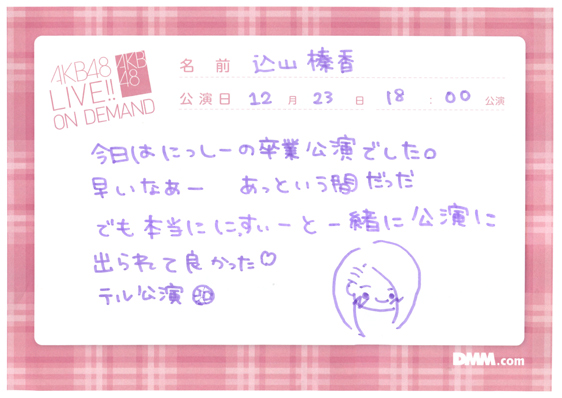 AKB48
LIVE!!
ON DEMAND
AKB
48
名前 込山榛香
公演日 12月23日 18:00公演
今日はにっしーの卒業公演でした。
早いなあー あっという間だっだ
でも本当ににっすぃーと一緒に公演に
出られて良かった♡
テル公演
DMM.com